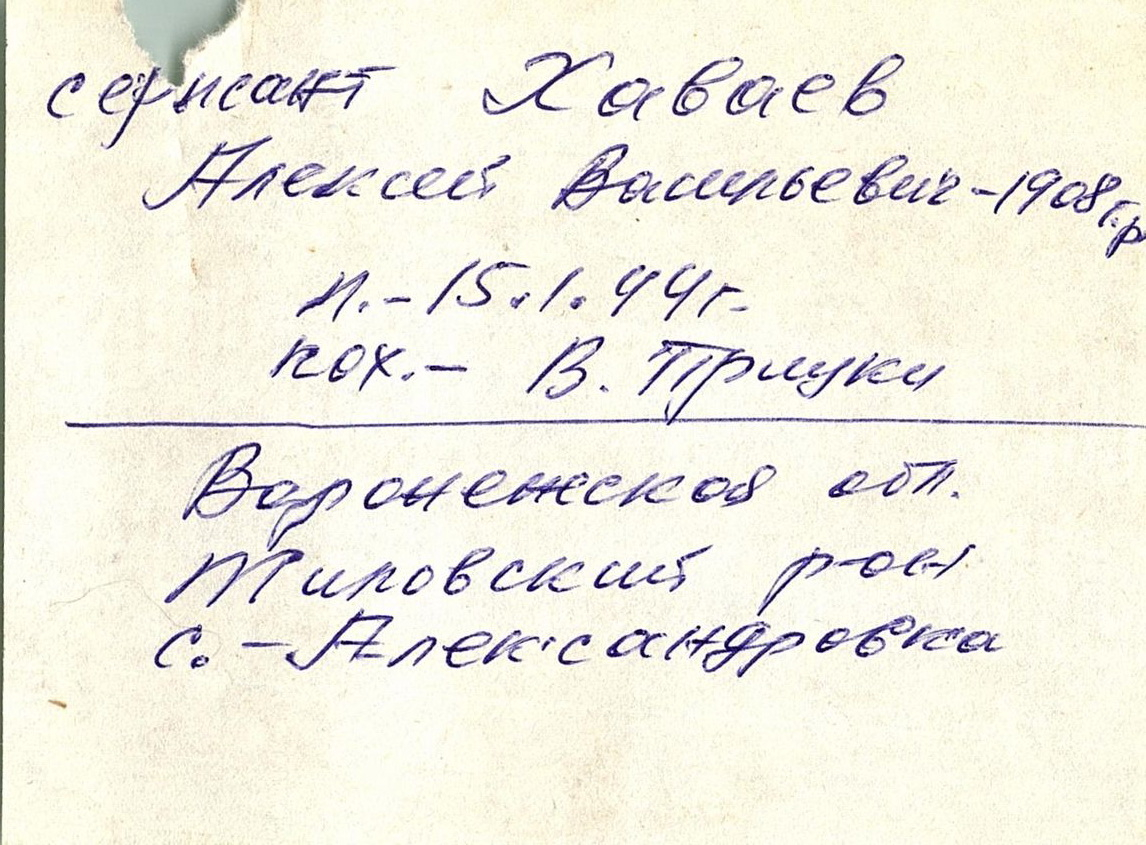 сержант Хаваев
Алексей Васильевич - 1908 г.р
п. - 15.1.44г.
пох. - В. Прмуки
Воронежская обл.
Тиловский р-он
с. - Александровка